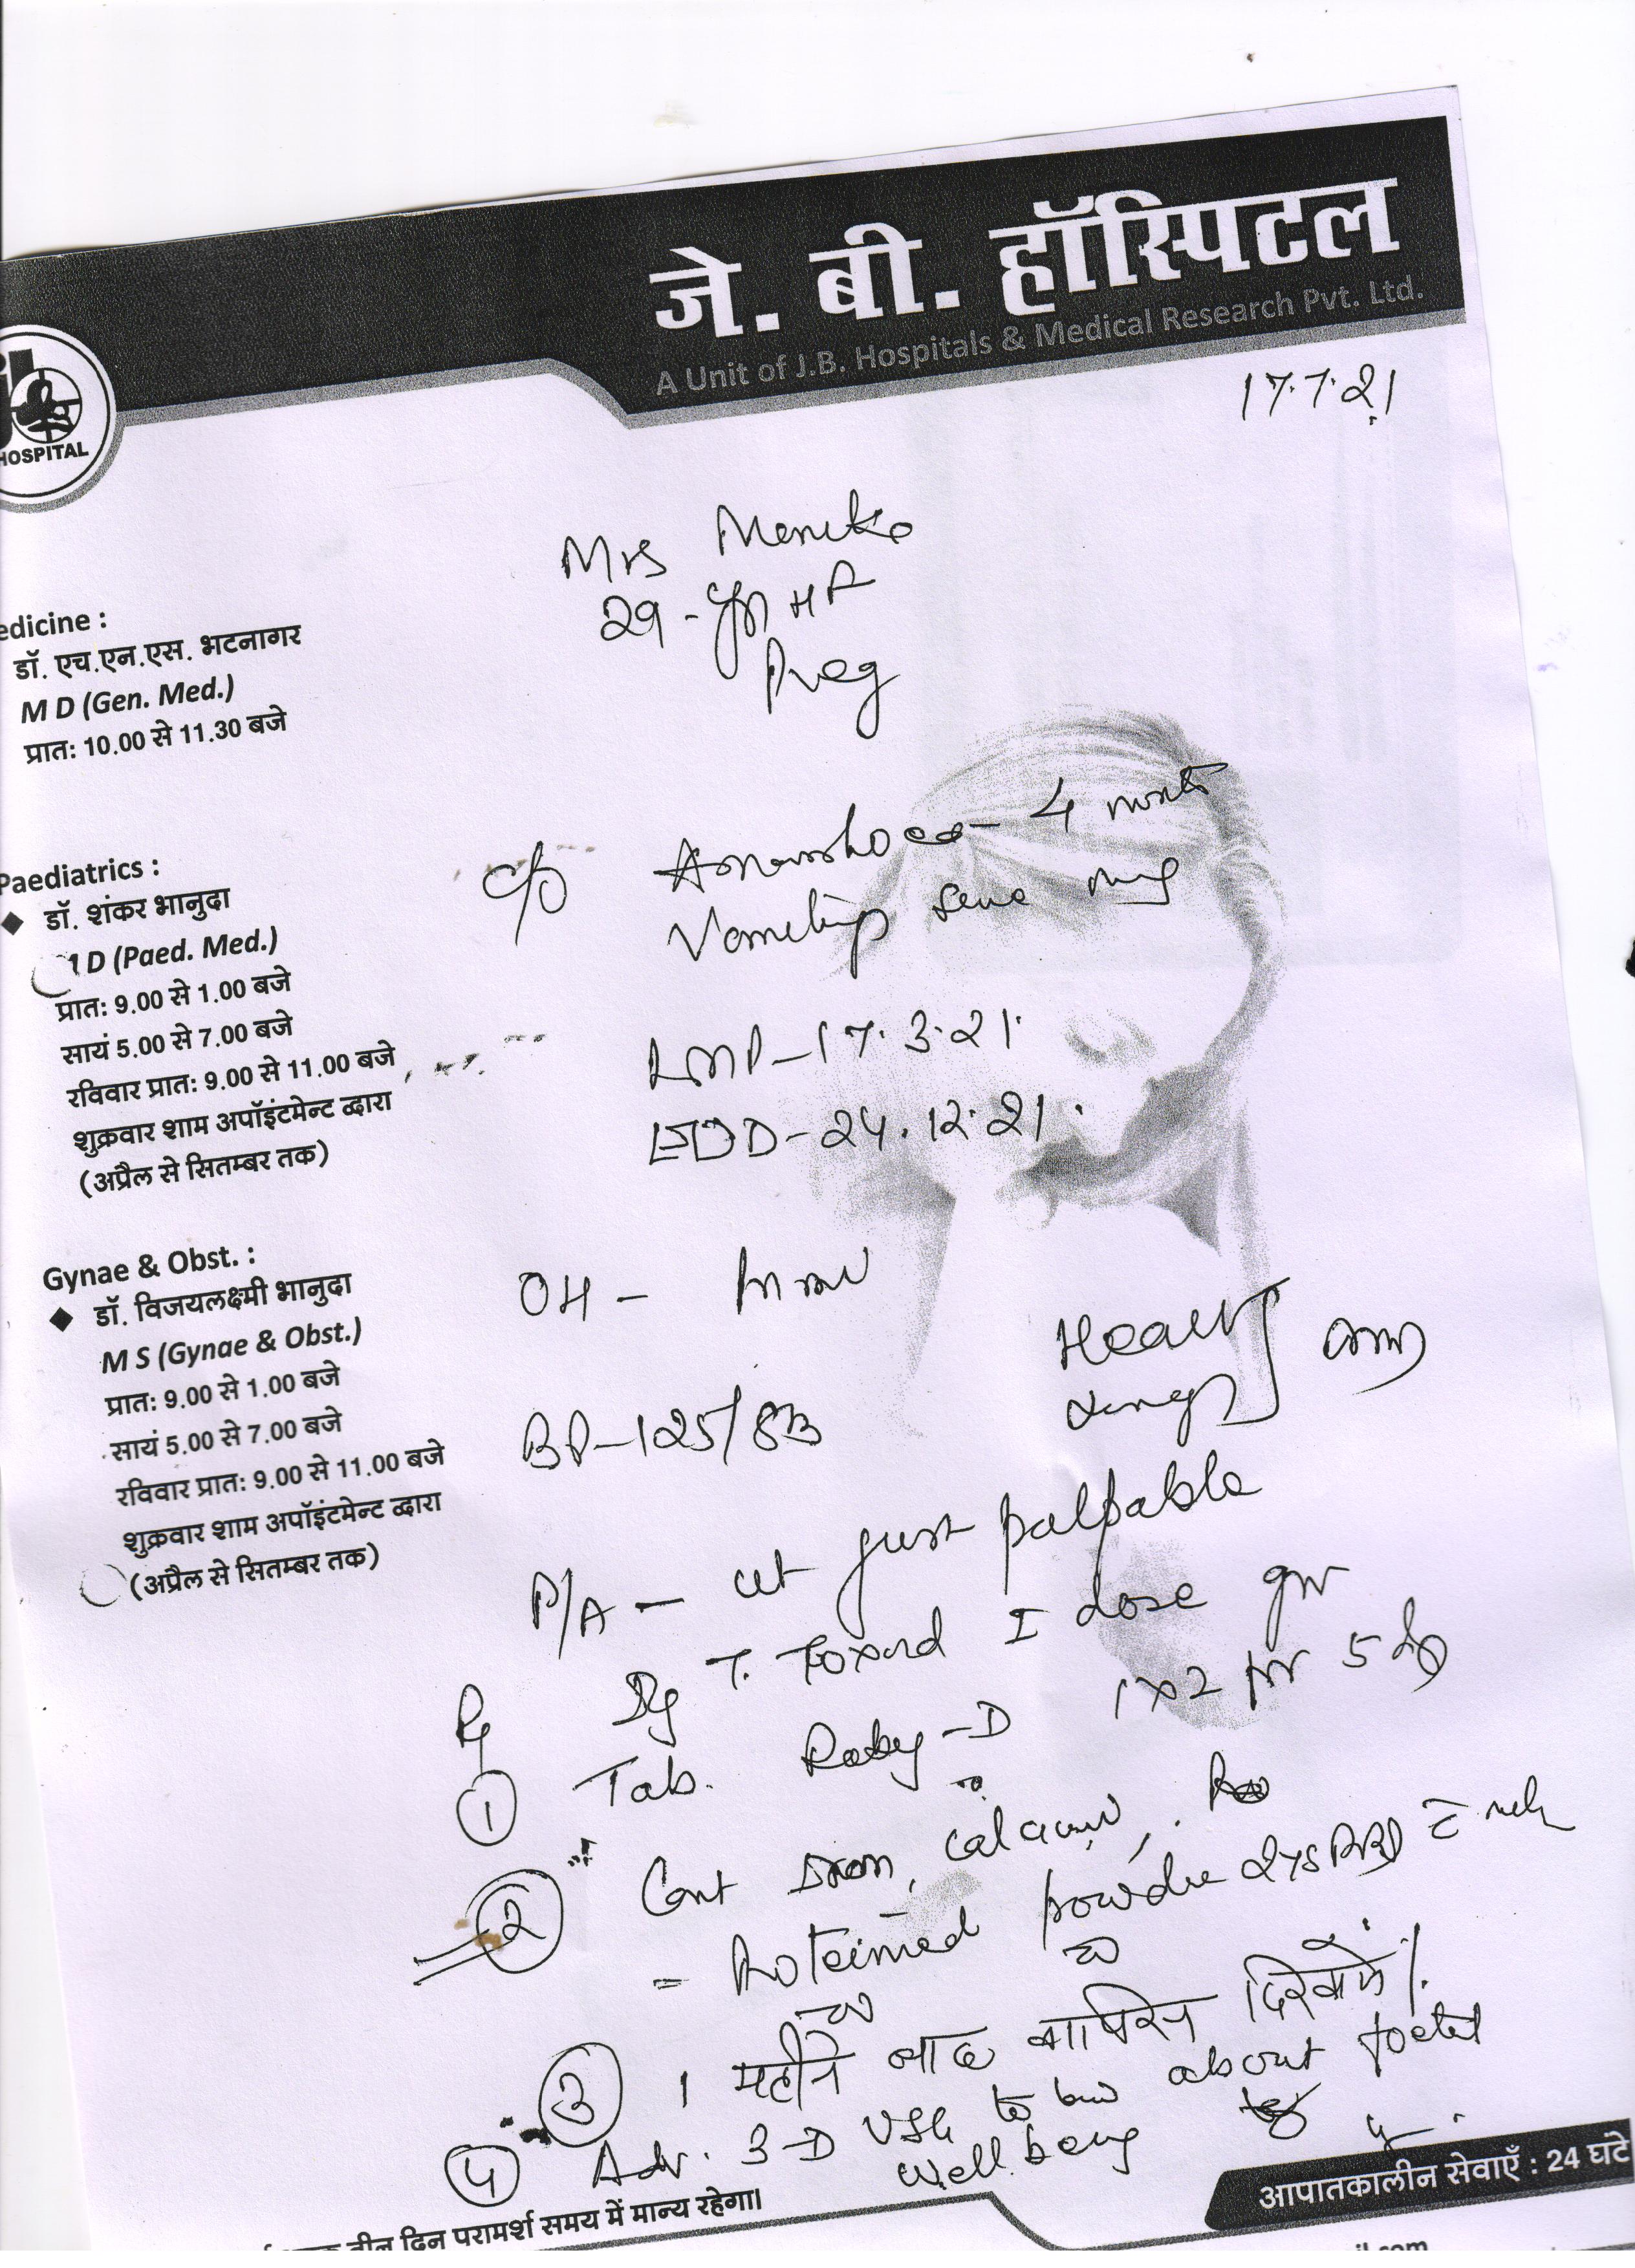 जे. बी. हॉस्पिटल
A Unit of J.B. Hospitals & Medical Research Pvt. Ltd.
HOSPITAL
17.7.21
Mrs
29 - F
Preg
edicine :
डॉ. एच.एन.एस. भटनागर
M D (Gen. Med.)
प्रात: 10.00 से 11.30 बजे
Paediatrics :
डॉ. शंकर भानुदा
D (Paed. Med.)
प्रात: 9.00 से 1.00 बजे
सायं 5.00 से 7.00 बजे
रविवार प्रात: 9.00 से 11.00 बजे
शुक्रवार शाम अपॉइंटमेन्ट द्वारा
(अप्रैल से सितम्बर तक)
Gynae & Obst. :
डॉ. विजयलक्ष्मी भानुदा
M S (Gynae & Obst.)
प्रात: 9.00 से 1.00 बजे
सायं 5.00 से 7.00 बजे
रविवार प्रात: 9.00 से 11.00 बजे
शुक्रवार शाम अपॉइंटमेन्ट द्वारा
(अप्रैल से सितम्बर तक)
c/o 4 month
Vomiting
LMP - 17.3.21
EDD - 24.12.21
OH -
Heart
Lungs
BP - 125/83
P/A - ut just palpable
I dose
① Tab. - D 1x2 for 5
② Cont Iron, calcium,
- powder
③ 1 महीने बाद वापिस दिखायें।
④ Adv. 3-D USG to about foetal
well being
तीन दिन परामर्श समय में मान्य रहेगा।
आपातकालीन सेवाएँ : 24 घंटे